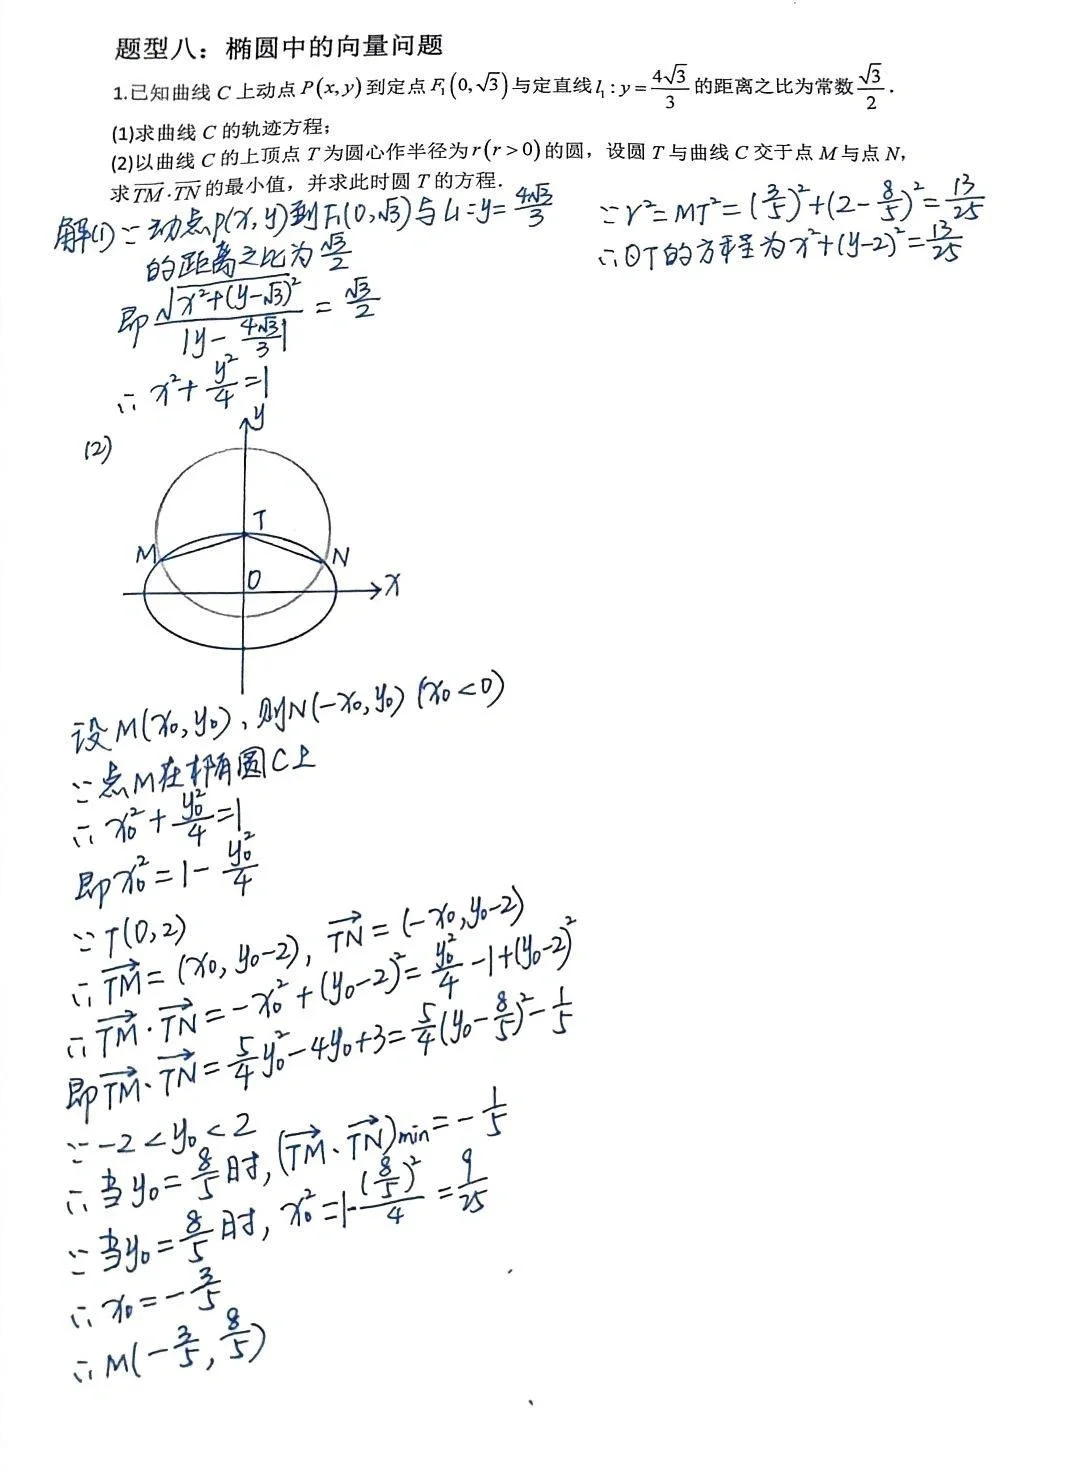 题型八：椭圆中的向量问题
1.已知曲线 C 上动点 P(x,y) 到定点 F₁(0,√3) 与定直线 l₁:y=4√3/3 的距离之比为常数 √3/2.
(1)求曲线 C 的轨迹方程；
(2)以曲线 C 的上顶点 T 为圆心作半径为 r(r>0) 的圆，设圆 T 与曲线 C 交于点 M 与点 N，
求 TM·TN 的最小值，并求此时圆 T 的方程.
解(1)∵动点P(x,y)到F₁(0,√3)与L₁:y=4√3/3
的距离之比为√3/2
即 √(x²+(y-√3)²)/|y-4√3/3| = √3/2
∴x²+y²/4=1
(2)
y
T
M
N
O
x
设M(x₀,y₀),则N(-x₀,y₀)(x₀<0)
∵点M在椭圆C上
∴x₀²+y₀²/4=1
即x₀²=1-y₀²/4
∵T(0,2)
∴TM=(x₀,y₀-2), TN=(-x₀,y₀-2)
∴TM·TN=-x₀²+(y₀-2)²=y₀²/4-1+(y₀-2)²
即TM·TN=5/4y₀²-4y₀+3=5/4(y₀-8/5)²-1/5
∵-2<y₀<2
∴当y₀=8/5时,(TM·TN)min=-1/5
∵当y₀=8/5时,x₀²=1-(8/5)²/4=9/25
∴x₀=-3/5
∴M(-3/5,8/5)
∵r²=MT²=(3/5)²+(2-8/5)²=13/25
∴⊙T的方程为x²+(y-2)²=13/25